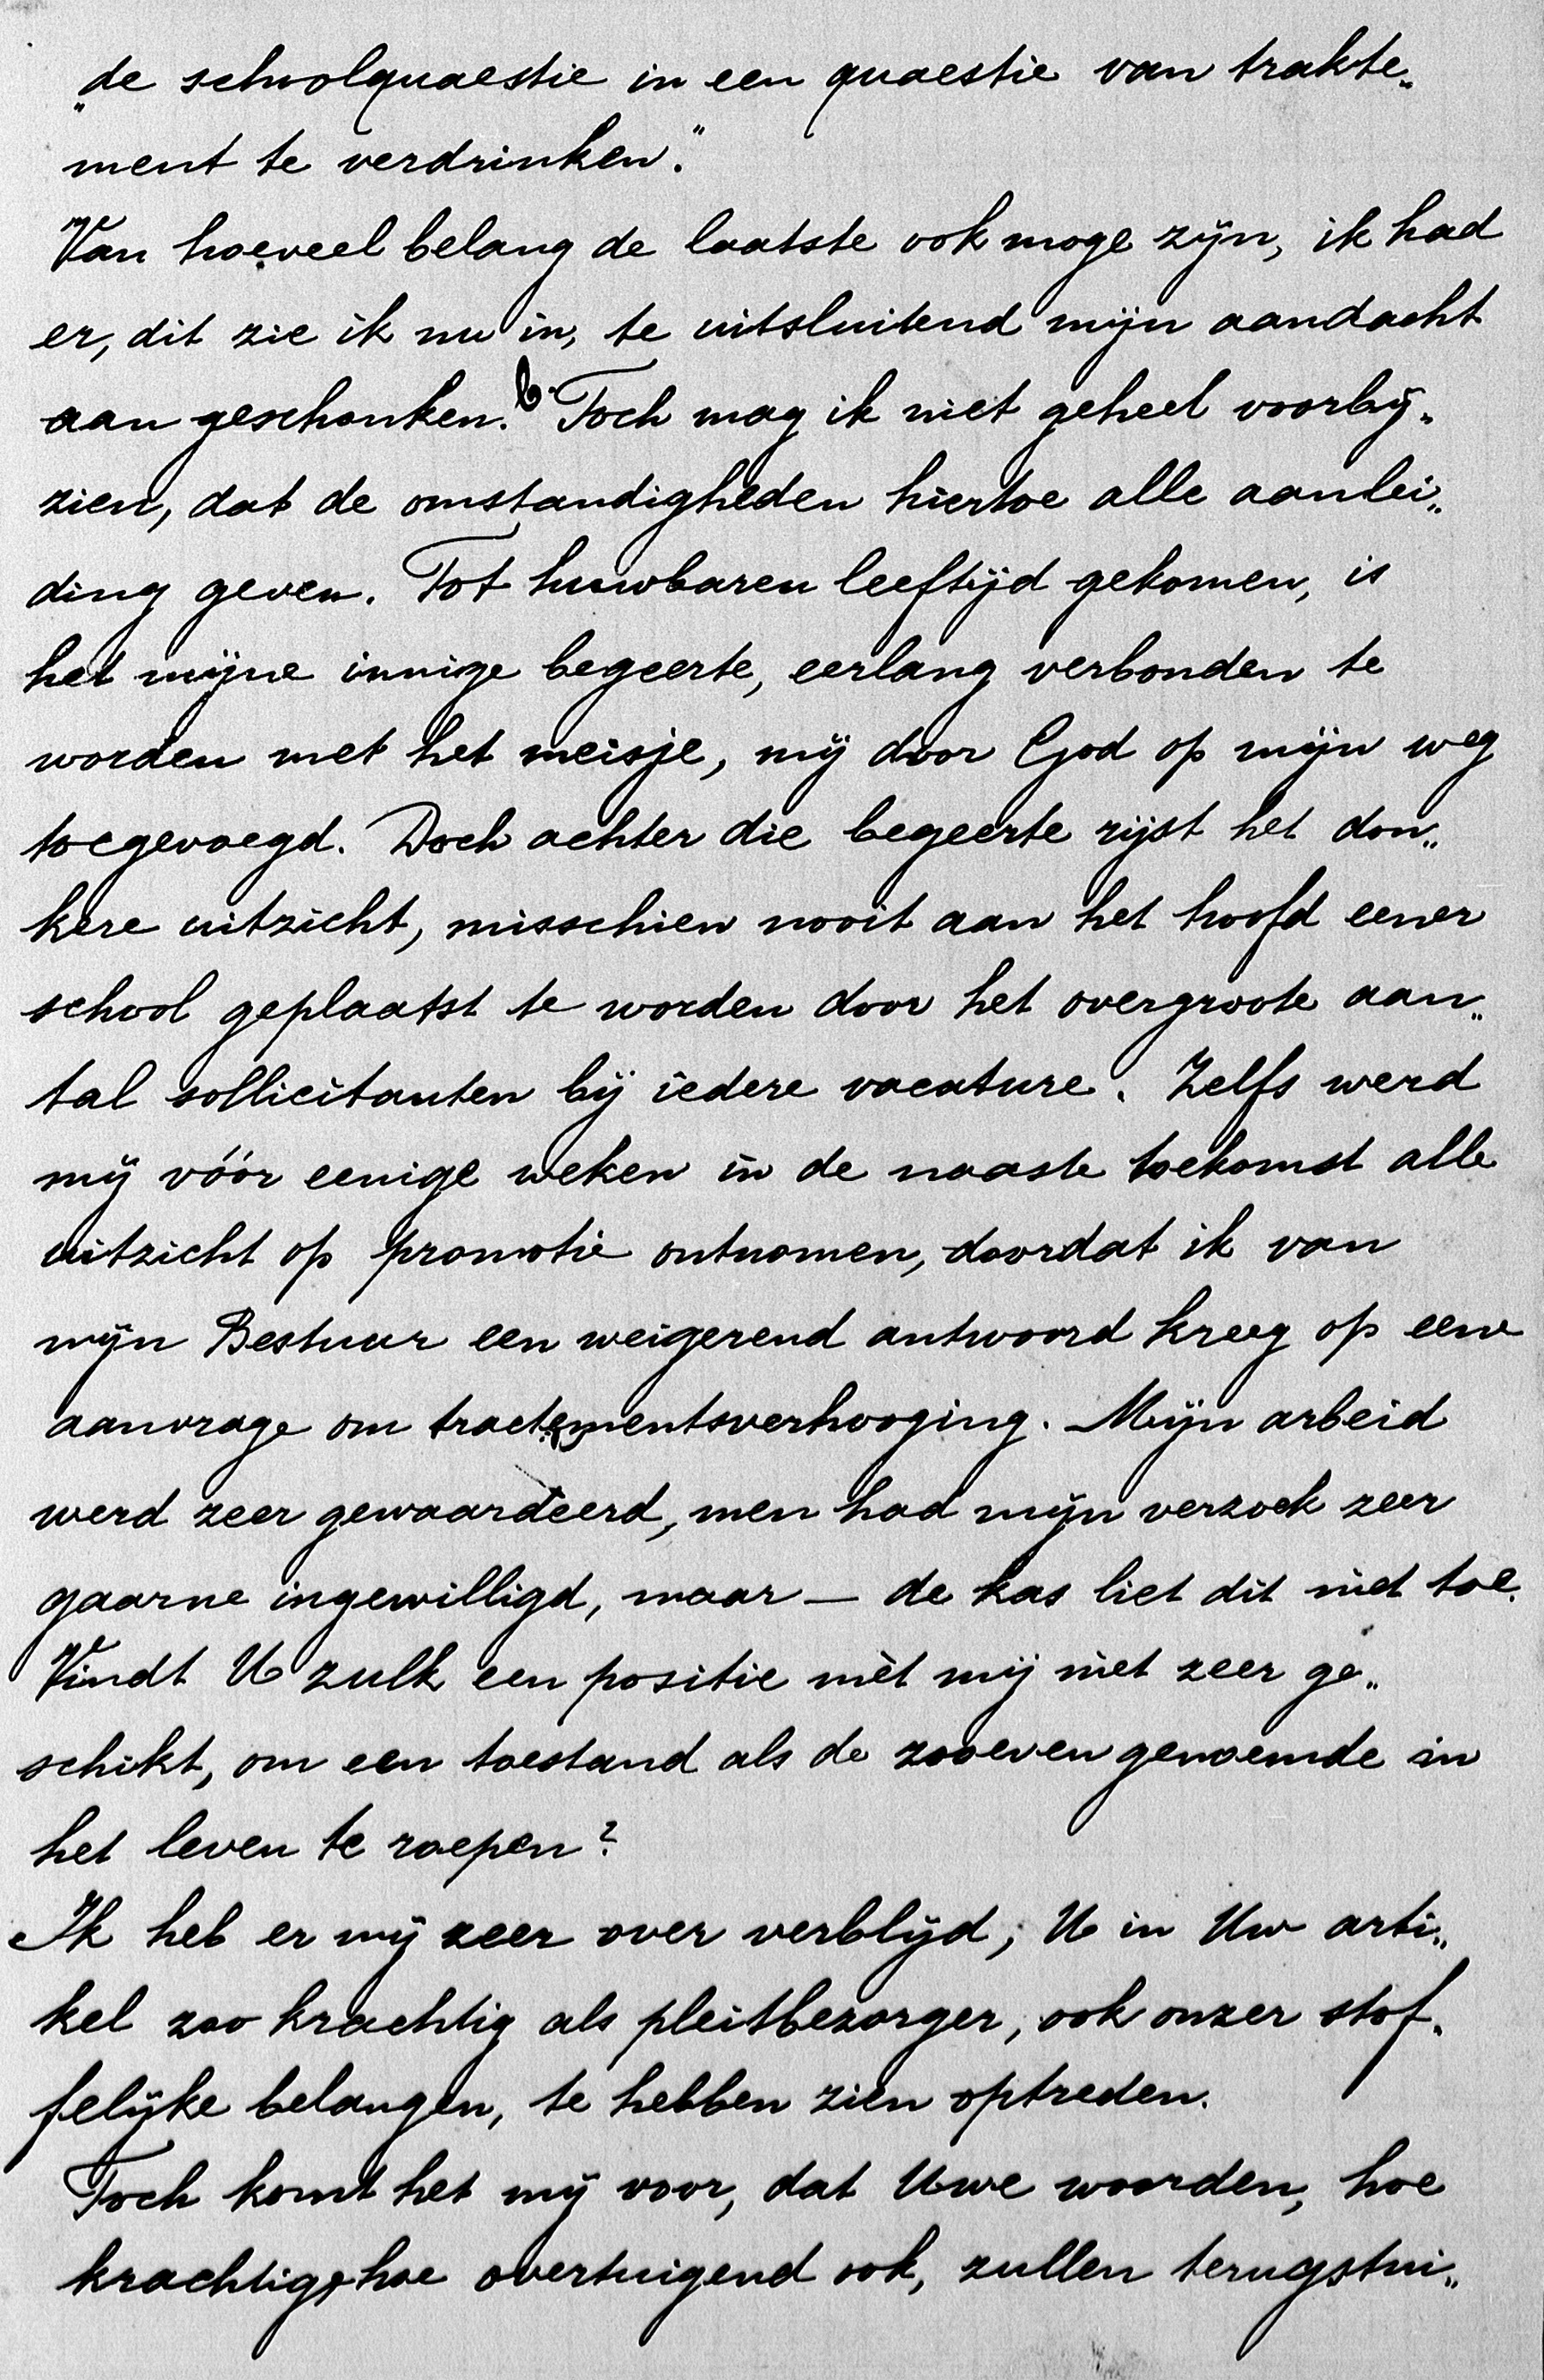 „de schoolquaestie in een quaestie van trakte„
ment te verdrinken."
Van hoeveel belang de laatste ook moge zijn, ik had
er, dit zie ik nu in, te uitsluitend mijn aandacht
aan geschonken. b. Toch mag ik niet geheel voorbij„
zien, dat de omstandigheden hiertoe alle aanlei„
ding geven. Tot huwbaren leeftijd gekomen, is
het mijne innige begeerte, eerlang verbonden te
worden met het meisje, mij door God op mijn weg
toegevoegd. Doch achter die begeerte rijst het don„
kere uitzicht, misschien nooit aan het hoofd eener
school geplaatst te worden door het overgroote aan„
tal sollicitanten bij iedere vacature. Zelfs werd
mij vóór eenige weken in de naaste toekomst alle
uitzicht op promotie ontnomen, doordat ik van
mijn Bestuur een weigerend antwoord kreeg op eene
aanvrage om tractementsverhooging. Mijn arbeid
werd zeer gewaardeerd, men had mijn verzoek zeer
gaarne ingewilligd, maar — de kas liet dit niet toe.
Vindt U zulk een positie mèt mij niet zeer ge„
schikt, om een toestand als de zooeven genoemde in
het leven te roepen?
Ik heb er mij zeer over verblijd, U in Uw arti„
kel zoo krachtig als pleitbezorger, ook onzer stof„
felijke belangen, te hebben zien optreden.
Toch komt het mij voor, dat Uwe woorden, hoe
krachtig, hoe overtuigend ook, zullen terugstui„